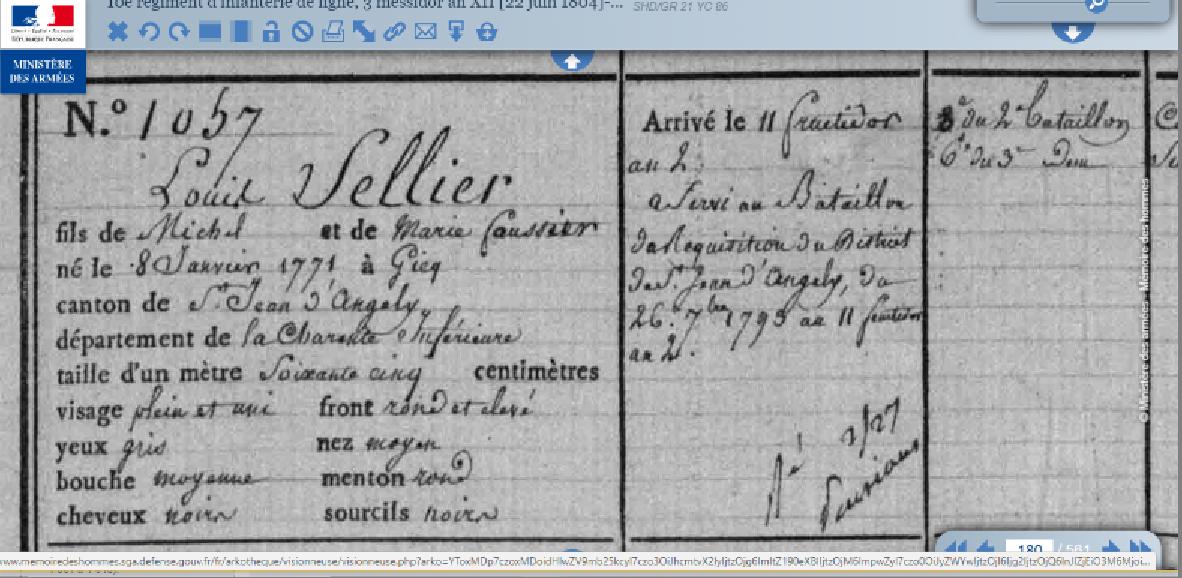 10e régiment d'infanterie de ligne, 3 messidor an XII [22 juin 1804]-... SHD/GR 21 YC 86
RÉPUBLIQUE FRANÇAISE
MINISTÈRE
DES ARMÉES
N.º 1057
Louis Sellier
fils de Michel et de Marie Caussier
né le 8 Janvier 1771 à Gicq
canton de St. Jean d'Angely,
département de la Charente Inférieure
taille d'un mètre Soixante cinq centimètres
visage plein et uni front rond et elevé
yeux gris nez moyen
bouche moyenne menton rond
cheveux noirs sourcils noirs
Arrivé le 11 fructidor
an 2.
a Servi au Bataillon
da Requisition du District
de St. Jean d'Angely, du
26. 7bre 1793 au 11 fructidor
an 2.
2/27
3e du 2e bataillon
6e du 3e
© Ministère des armées - Mémoire des hommes
180 / 561